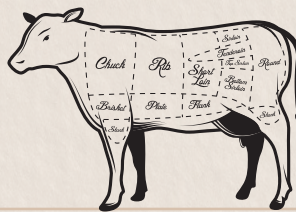 Chuck
Rib
Short
Loin
Sirloin
Tenderloin
Top Sirloin
Bottom
Sirloin
Round
Brisket
Plate
Flank
Shank
Shank